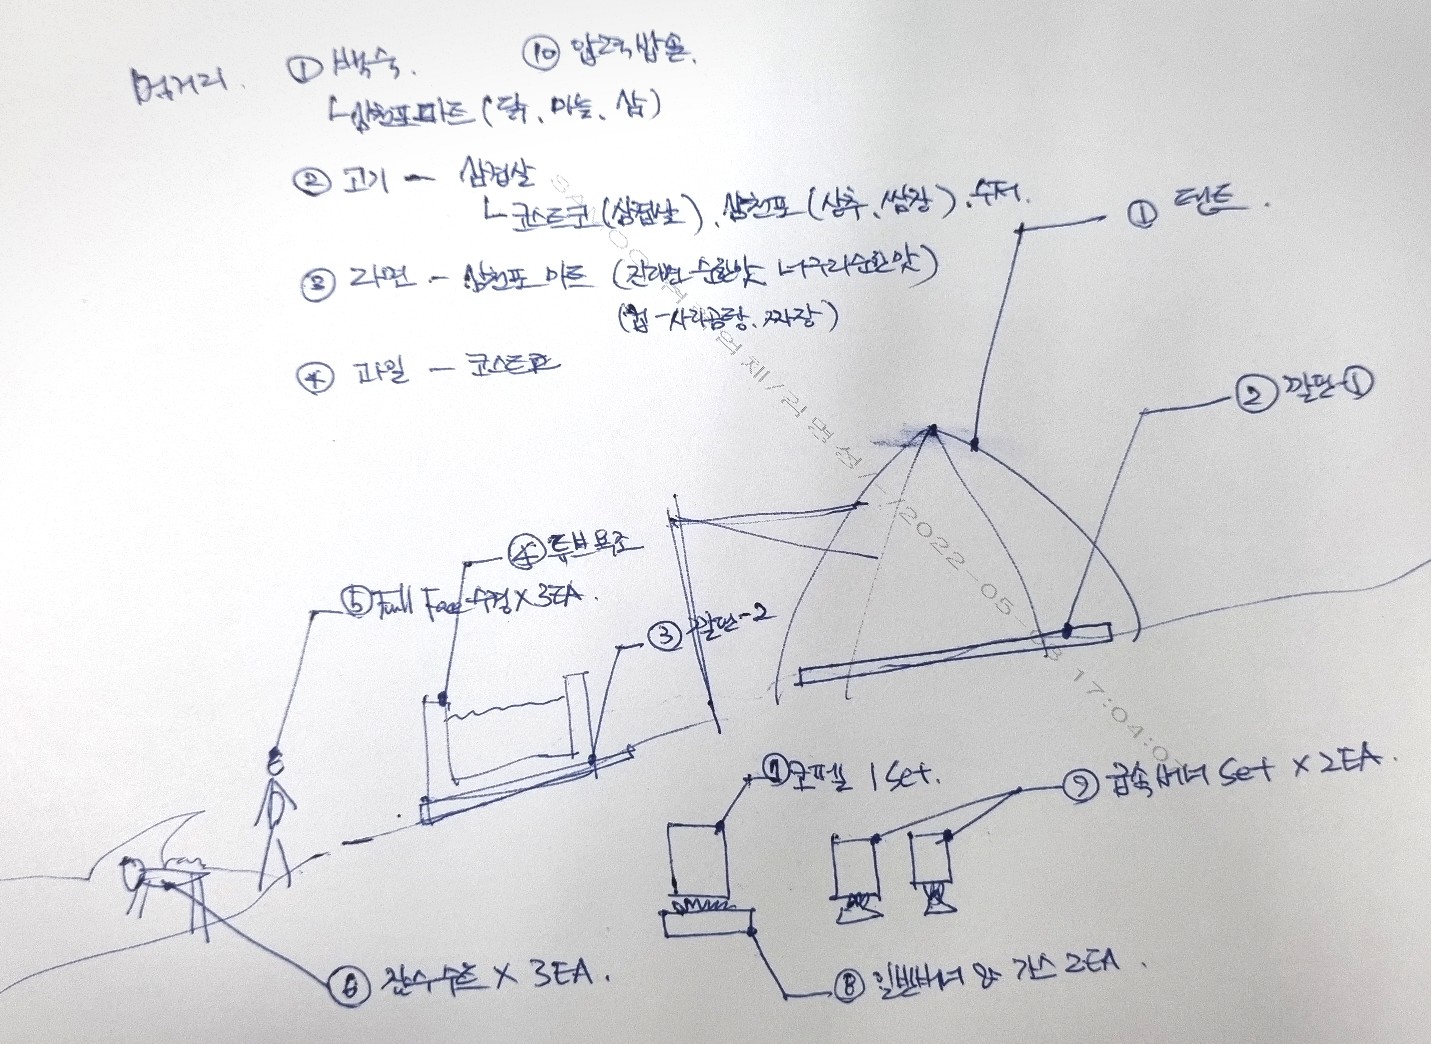 먹거리. ① 백숙. ⑩ 압력밥솥.
ㄴ삼천포마트 (닭, 마늘, 삼)
② 고기 - 삼겹살
ㄴ코스트코 (삼겹살), 삼천포 (상추, 쌈장), 수저.
③ 라면 - 삼천포 마트 (진라면 순한맛, 너구리순한맛)
(컵-사리곰탕, 짜장)
④ 과일 - 코스트코
① 텐트.
② 깔판-①
④ 튜브욕조
⑤ Full Face 수경 × 3EA.
③ 깔판-2
⑦ 코펠 1 Set.
⑨ 급속버너 Set × 2EA.
⑥ 잠수수트 × 3EA.
⑧ 일반버너 & 가스 2EA.
2022-05- 17:04:0